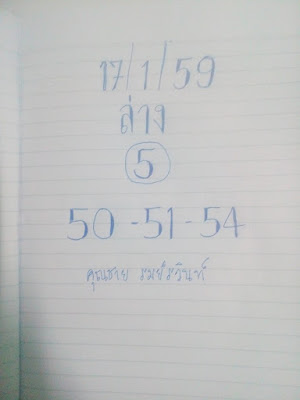 17/1/59
ล่าง
5
50-51-54
คุณชาย รมย์รวินท์